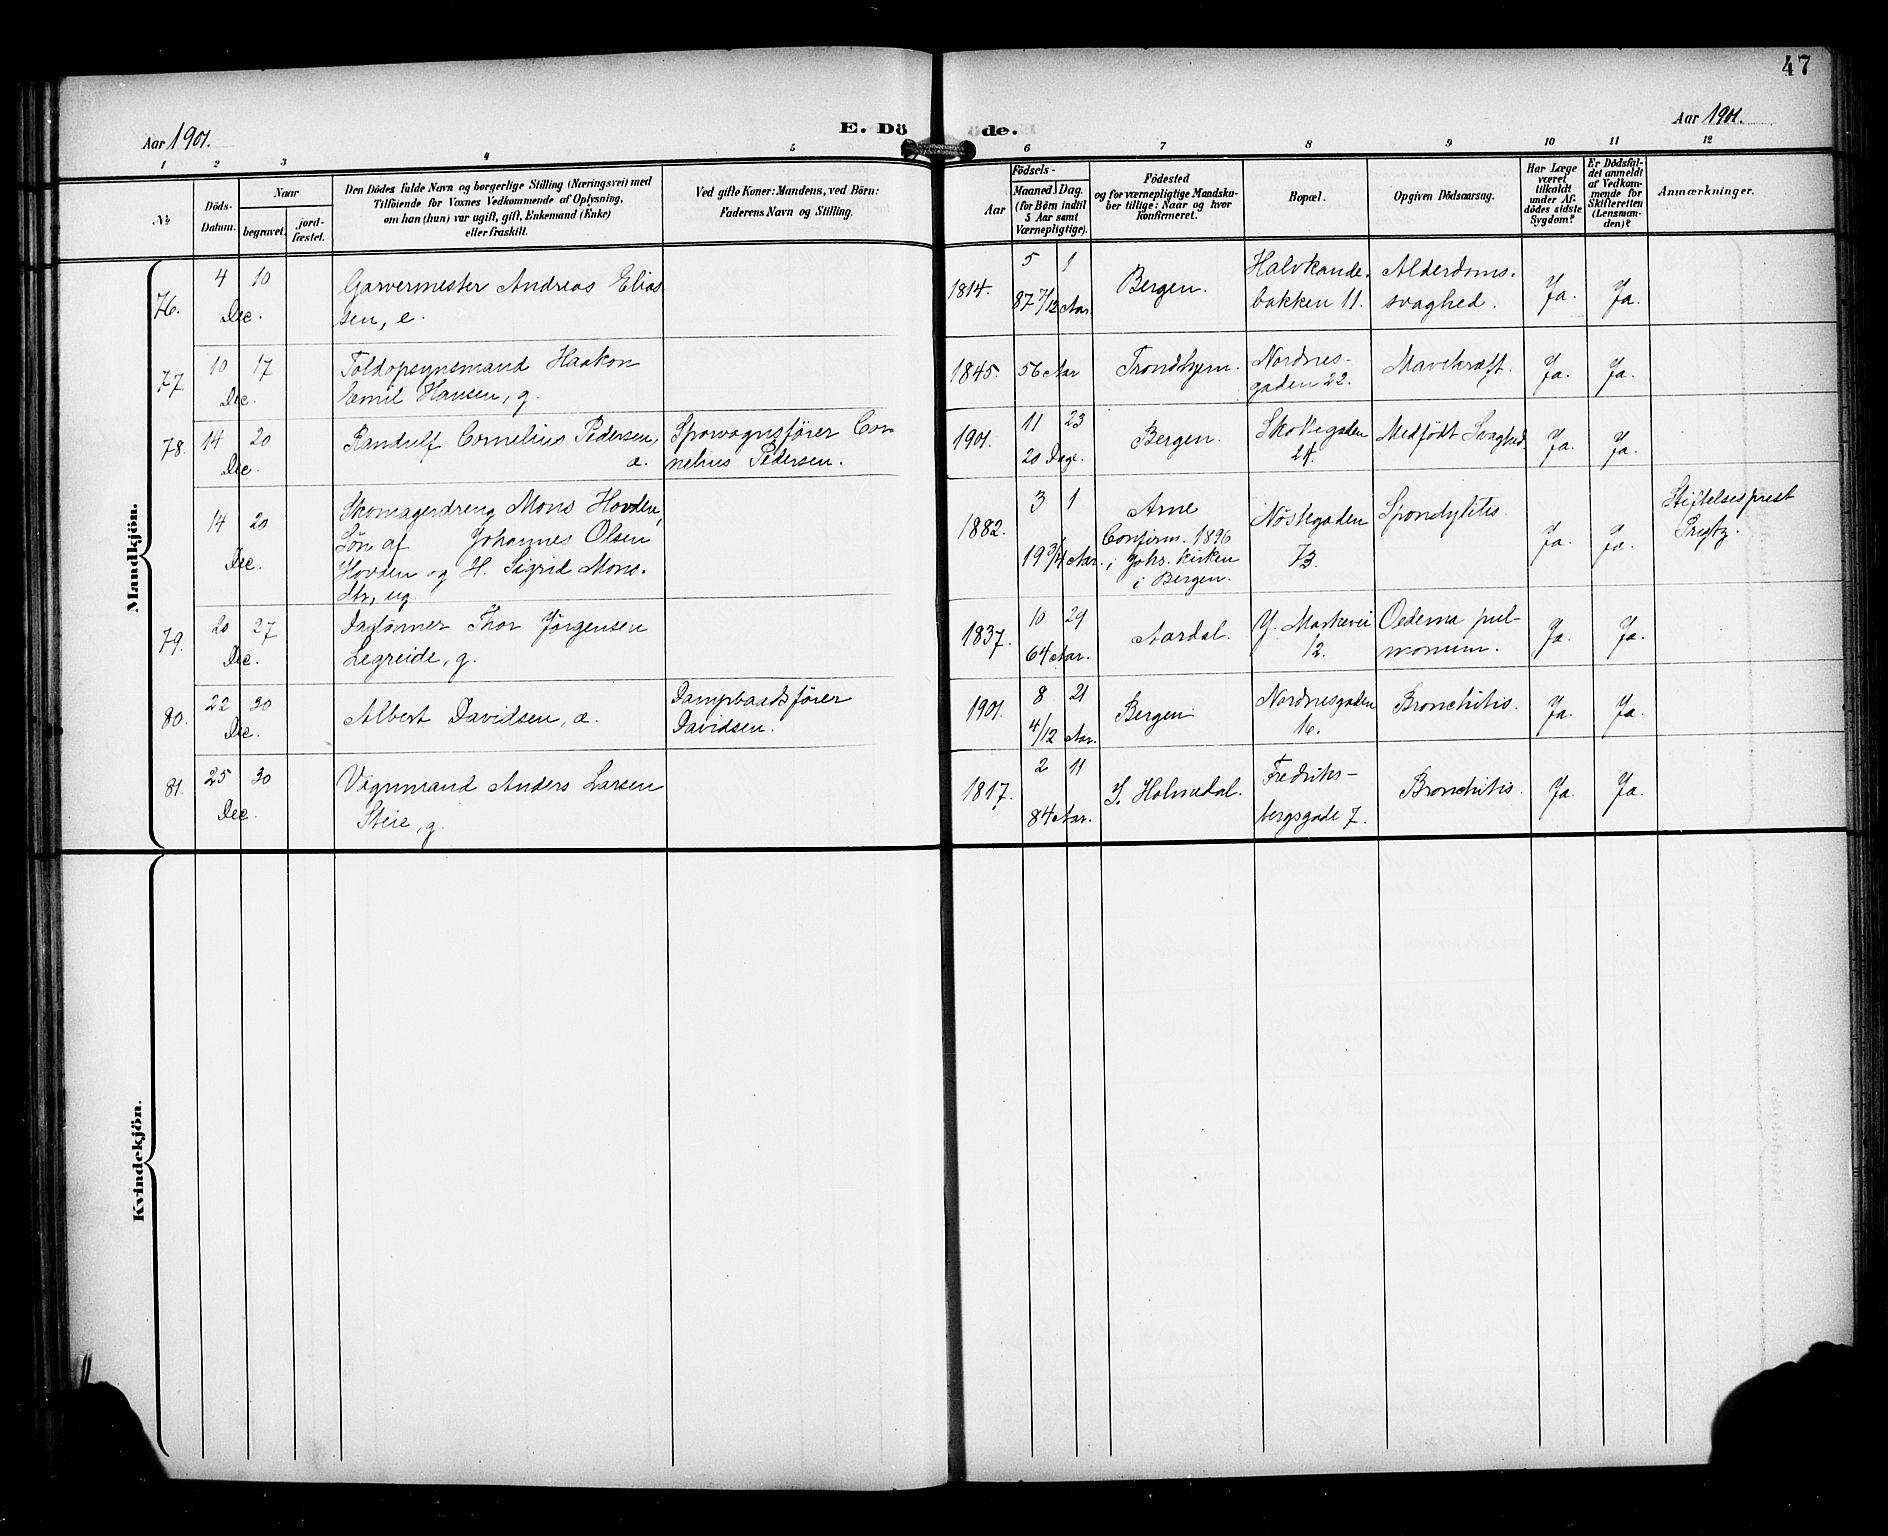 47
Aar 1901.
E. Dö
öde.
Aar 1901.
1 2 3 4 5 6 7 8 9 10 11 12
№
Döds-
Datum.
Naar
begravet.
jord-
fæstet.
Den Dödes fulde Navn og borgerlige Stilling (Næringsvei) med
Tilföiende for Voxnes Vedkommende af Oplysning,
om han (hun) var ugift, gift, Enkemand (Enke)
eller fraskilt.
Ved gifte Koner: Mandens, ved Börn:
Faderens Navn og Stilling.
Födsels-
Aar
Maaned. Dag.
(for Börn indtil
5 Aar samt
Værnepligtige).
Födested
og for værnepligtige Mandska-
ber tillige: Naar og hvor
konfirmeret.
Bopæl.
Opgiven Dödsaarsag.
Har Læge
været
tilkaldt
under Af-
dödes sidste
Sygdom?
Er Dödsfal-
det anmeldt
af Vedkom-
mende for
Skifteretten
(Lensman-
den)?
Anmærkninger.
Mandkjön.
76.
4 10
Dec.
Garvermester Andreas Elias
sen, e.
1814.
5 1
87 7/12 Aar.
Bergen.
Halvkande-
bakken 11.
Alderdoms-
svaghed.
Ja.
Ja.
77.
10 17
Dec.
Toldopsynsmand Haakon
Emil Hansen, g.
1845.
56 Aar
Trondhjem.
Nordnes-
gaden 22.
Mavekræft.
Ja.
Ja.
78.
14 20
Dec.
Randulf Cornelius Pedersen,
æ.
Sporvognsfører Cor
nelius Pedersen.
1901.
11 23
20 Dage.
Bergen.
Skottegaden
24.
Medfödt Svaghed.
Ja.
Ja.
14 20
Dec.
Skomagerdreng Mons Hovden,
Søn af Johannes Olsen
Hovden og H. Sigrid Mons-
dtr, ug.
1882.
3 1
19 3/4 Aar.
Arne
Confirm. 1896
i Johs. kirken
i Bergen.
Nöstegaden
73.
Spondylitis.
Ja.
Ja.
Stiftelsesprest
79.
20 27
Dec.
Daglönner Thor Jörgensen
Legreide, g.
1837.
10 29
64 Aar.
Aardal.
Y. Markevei
12.
Oedema pul-
monum.
Ja.
Ja.
80.
22 30
Dec.
Albert Davidsen, æ.
Dampbaadsfører
Davidsen.
1901.
8 21
4/12 Aar.
Bergen
Nordnesgaden
16.
Bronchitis.
Ja.
Ja.
81.
25 30
Dec.
Vognmand Anders Larsen
Steie, g.
1817.
2 11
84 Aar.
I. Holmedal.
Fredriks-
bergsgade 7.
Bronchitis.
Ja.
Ja.
Kvindekjön.